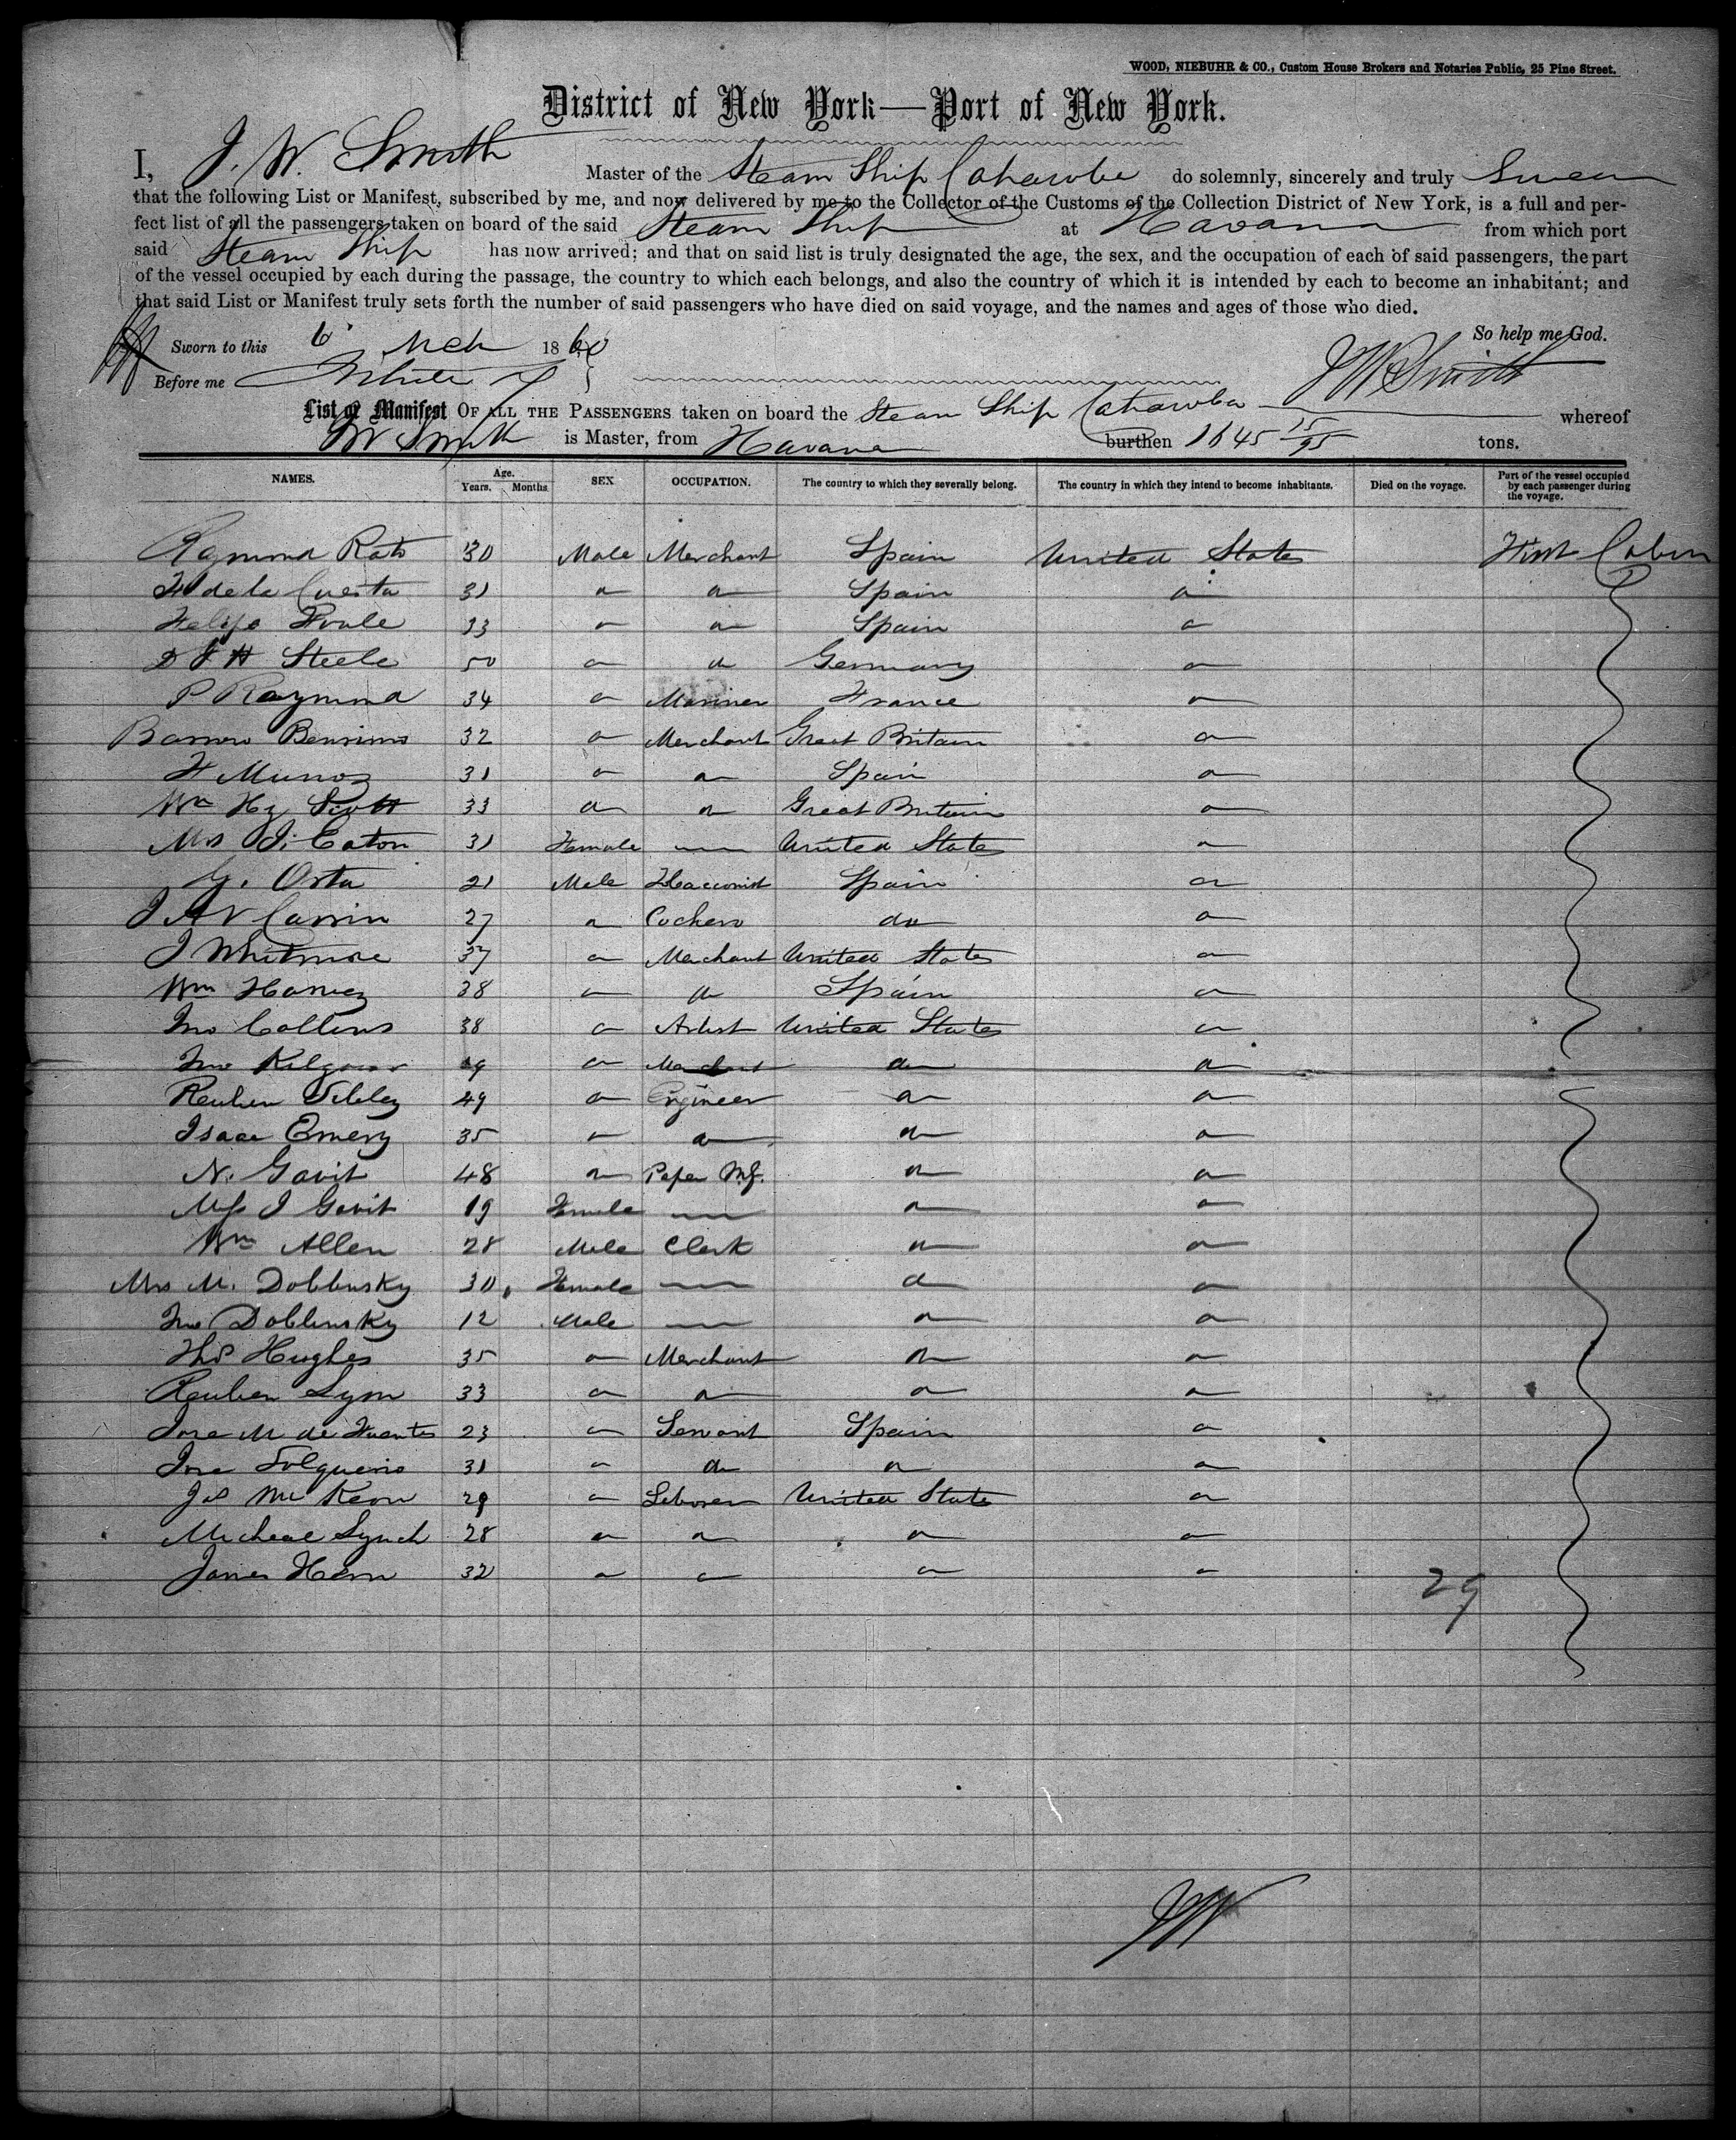 WOOD, NIEBUHR & CO., Custom House Brokers and Notaries Public, 25 Pine Street.
District of New York—Port of New York.
I, J. W. Smith Master of the Steam Ship Cahawba do solemnly, sincerely and truly Swear
that the following List or Manifest, subscribed by me, and now delivered by me to the Collector of the Customs of the Collection District of New York, is a full and per-
fect list of all the passengers taken on board of the said Steam Ship at Havana from which port
said Steam Ship has now arrived; and that on said list is truly designated the age, the sex, and the occupation of each of said passengers, the part
of the vessel occupied by each during the passage, the country to which each belongs, and also the country of which it is intended by each to become an inhabitant; and
that said List or Manifest truly sets forth the number of said passengers who have died on said voyage, and the names and ages of those who died.
So help me God.
Sworn to this 6 Mch 1860
Before me J W Smith
List or Manifest OF ALL THE PASSENGERS taken on board the Steam Ship Cahawba whereof
J W Smith is Master, from Havana burthen 1645 75/95 tons.
NAMES. Age. Years. Months SEX OCCUPATION. The country to which they severally belong. The country in which they intend to become inhabitants. Died on the voyage. Part of the vessel occupied by each passenger during the voyage.
Raymond 30 Male Merchant Spain United States First Cabin
F de la Cuesta 31 " " Spain "
Felipe 33 " " Spain "
Steele 50 " " Germany "
P Raymond 34 " Mariner France "
32 " Merchant Great Britain "
F Munoz 31 " " Spain "
Wm Hy Scott 33 " " Great Britain "
Mrs J. Eaton 31 Female — United States "
G. Orta 21 Male Spain "
27 " Cochero do "
J Whitmore 37 " Merchant United States "
Wm 38 " " Spain "
Jno Collins 38 " Artist United States "
Jno Kilgour " Merchant " "
Reuben Sibley 49 " Engineer " "
Isaac Emery 35 " " " "
N. Gavit 48 " Paper Mf. " "
Miss J Gavit 19 Female — " "
Wm Allen 28 Male Clerk " "
Mrs M. Doblinsky 30 Female — " "
Jno Doblinsky 12 Male — " "
Thos Hughes 35 " Merchant " "
Reuben Lyon 33 " " " "
Jose M de Fuentes 23 " Servant Spain "
Jose 31 " " " "
Jas McKeon 29 " Laborer United States "
Micheal Lynch 28 " " " "
James Hern 32 " " " "
29
JW